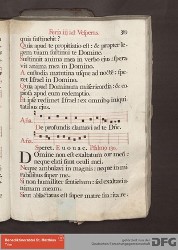 Feria iij ad Vesperas.
quis sustinebit?
Quia apud te propitiatio est: & propter le-
gem tuam sustinui te Domine.
Sustinuit anima mea in verbo ejus: spera-
vit anima mea in Domino.
A custodia matutina usque ad noctem: spe-
ret Israel in Domino.
Quia apud Dominum misericordia: & co-
piosa apud eum redemptio.
Et ipse redimet Israel: ex omnibus iniqui-
tatibus ejus.
Ana.
De profundis clamavi ad te Dne.
Ana.
Speret. E u o u a e. Psalmus
Domine non est exaltatum cor meum:
neque elati sunt oculi mei.
Neque ambulavi in magnis: neque in mi-
rabilibus super me.
Si non humiliter sentiebam: sed exaltavi a-
nimam meam.
Sicut ablactatus est super matre sua: ita re-
DFG